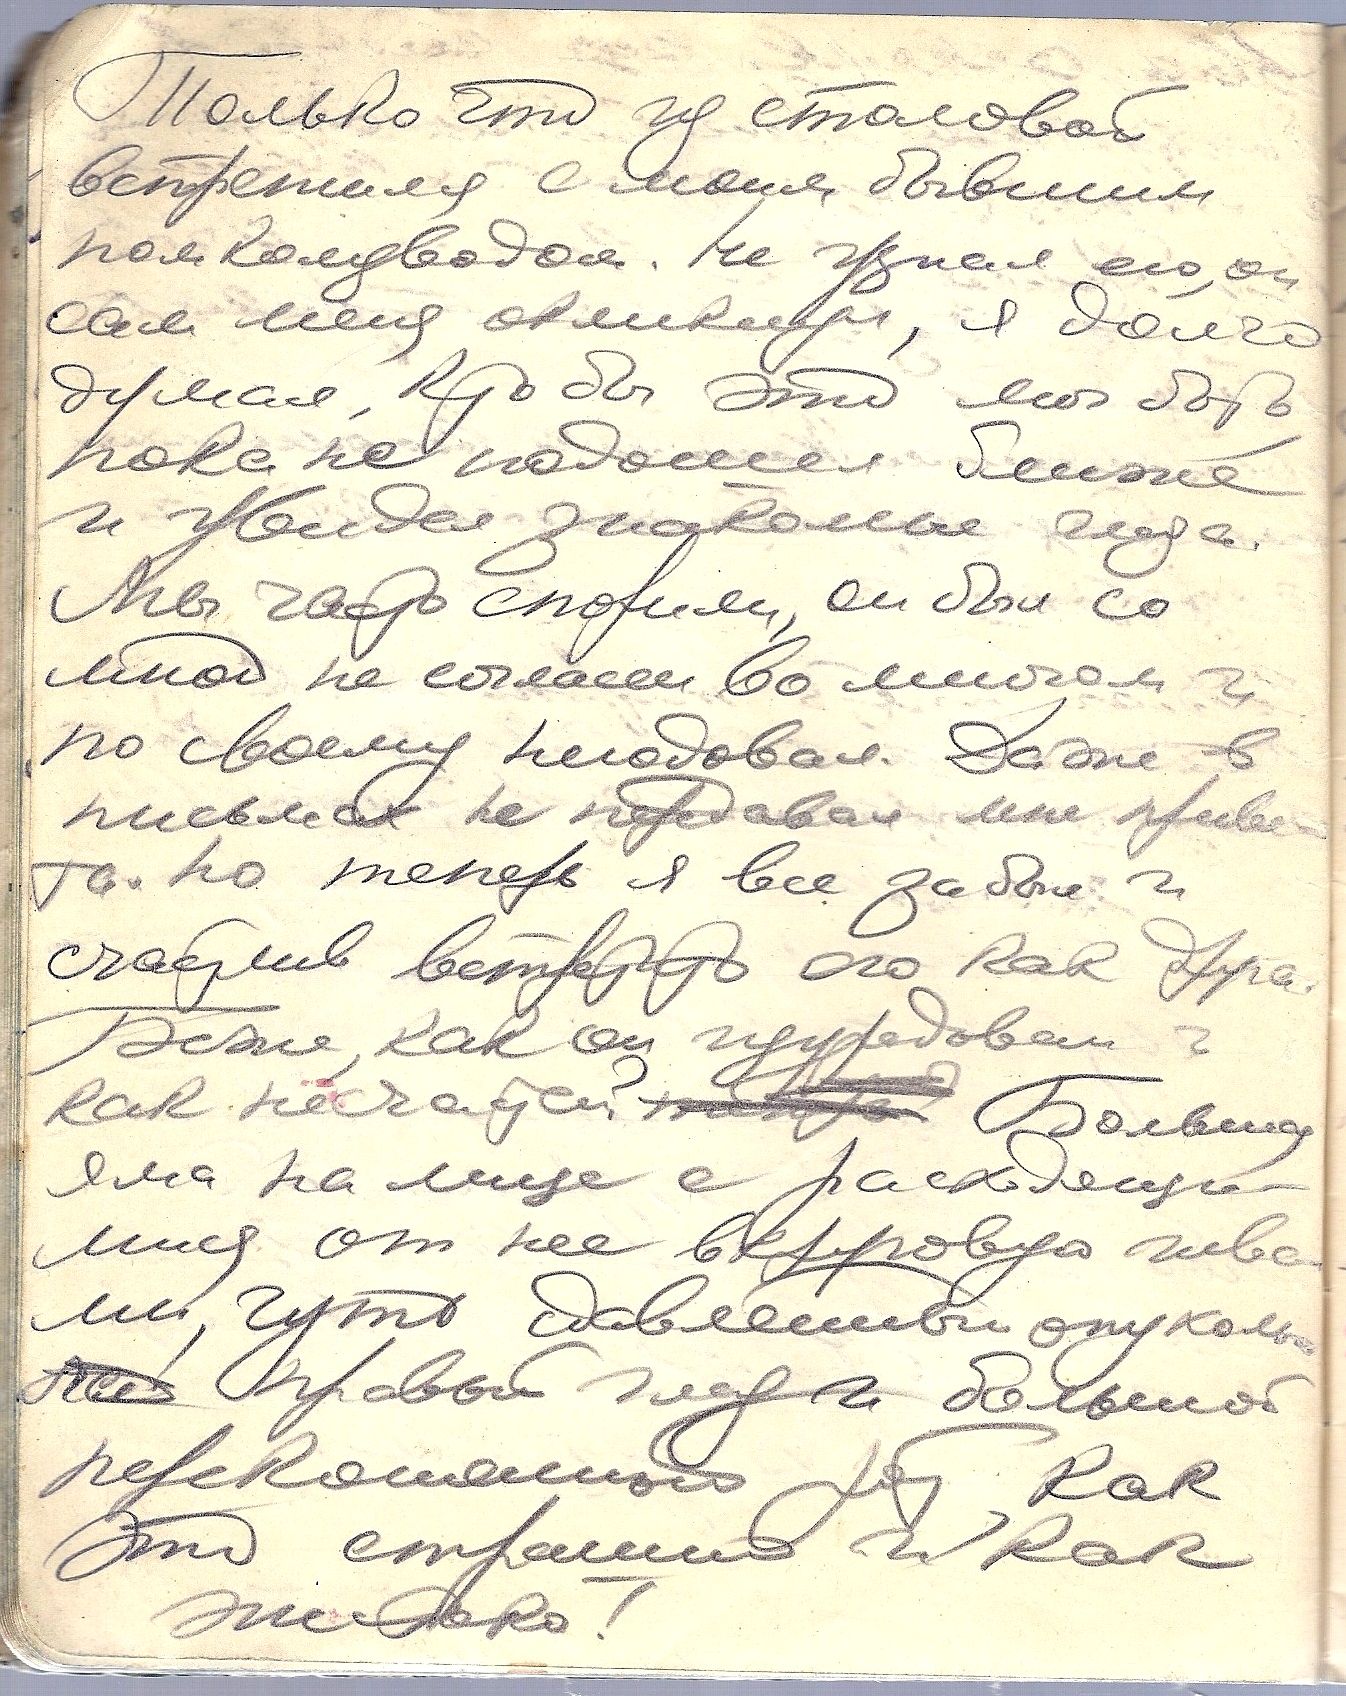 Только что из столовой
встретился с моим бывшим
помкомвзводом. Не узнал его, он
сам меня окликнул, я долго
думал, кто бы это мог быть
пока не подошел ближе
и увидел знакомые глаза.
Мы часто спорили, он был со
мной не согласен во многом и
по своему негодовал. Даже в
письмах не передавал мне приве-
та. Но теперь я все забыл и
счастлив встретить его как друга.
Боже, как он изуродован и
как несчастен! Большая
яма на лице с расходящи-
мися от нее вкруговую швами
ми, чуть сдавленный опухолью
правый глаз и большой
перекошенный рот, как
это страшно и как
жалко!